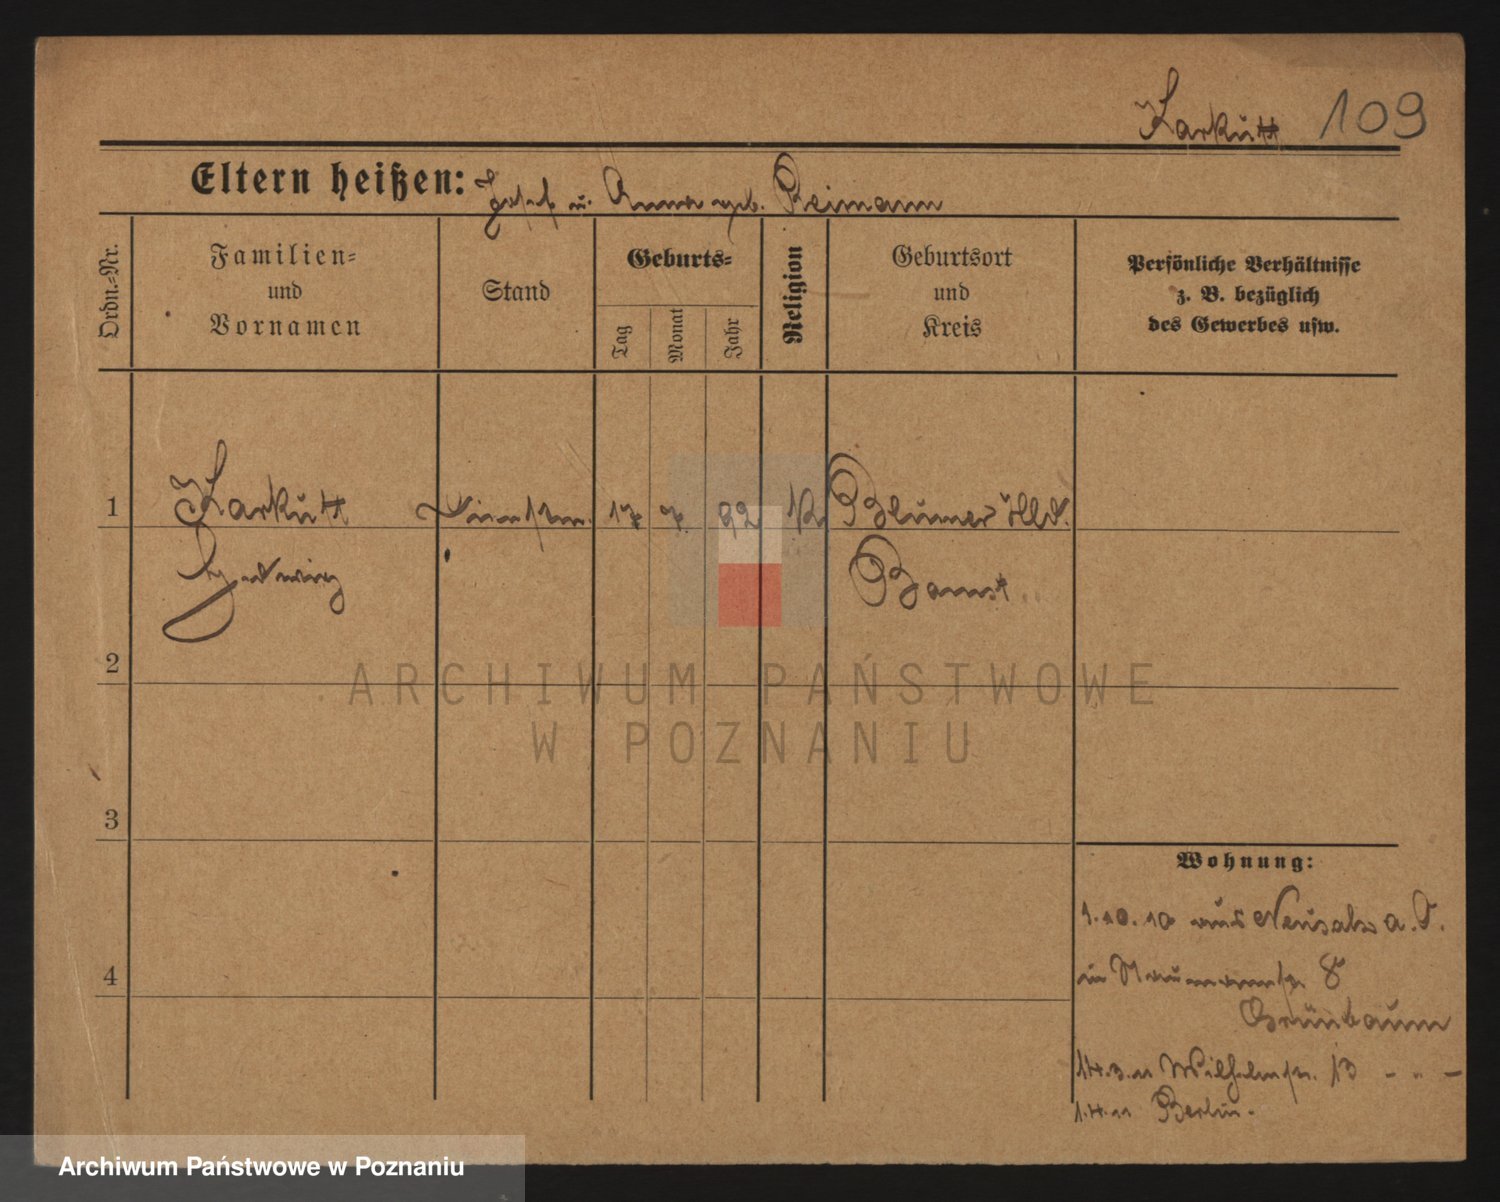 Karkutt 109
Eltern heißen: Josef u. Anna geb. Reimann
Ordn.-Nr.
Familien-
und
Vornamen
Stand
Geburts-
Tag
Monat
Jahr
Religion
Geburtsort
und
Kreis
Persönliche Verhältnisse
z. B. bezüglich
des Gewerbes usw.
1 Karkutt 17 7. 92 K Blumer Hld.
Hedwig Bomst.
2
ARCHIWUM PAŃSTWOWE
W POZNANIU
3
Wohnung:
1.10.10 aus Neusalz a. O.
4
in 8
Grünbaum
14.3.11 Wilhelmstr. 13 - " -
1.4.11 Berlin.
Archiwum Państwowe w Poznaniu